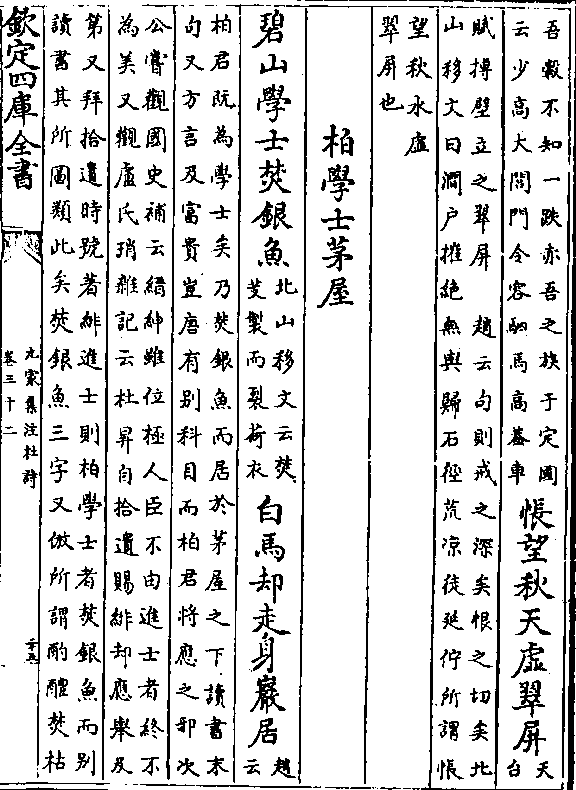 吾轂不知一跌赤吾之族于定國
云少高大閭門令容駟馬高蓋車
悵望秋天虛翠屏
天
台
賦搏壁立之翠屏 趙云句則戒之深矣恨之切矣北
山移文曰澗户摧絶無與歸石逕荒凉徒延佇所謂悵
望秋水虛
翠屏也
柏學士茅屋
碧山學士焚銀魚
北山移文云焚
芰製而裂荷衣
白馬却走身巖居
趙
云
柏君既為學士矣乃焚銀魚而居於茅屋之下讀書末
句又方言及富貴豈唐有别科目而柏君將應之邪次
公嘗觀國史補云縉紳雖位極人臣不由進士者終不
為美又觀盧氏瑣雜記云杜昇自拾遺賜緋却應舉及
第又拜拾遺時號著緋進士則柏學士者焚銀魚而别
讀書其所圖類此矣焚銀魚三字又倣所謂酌醴焚枯
欽定四庫全書
九家集注杜詩
卷三十二